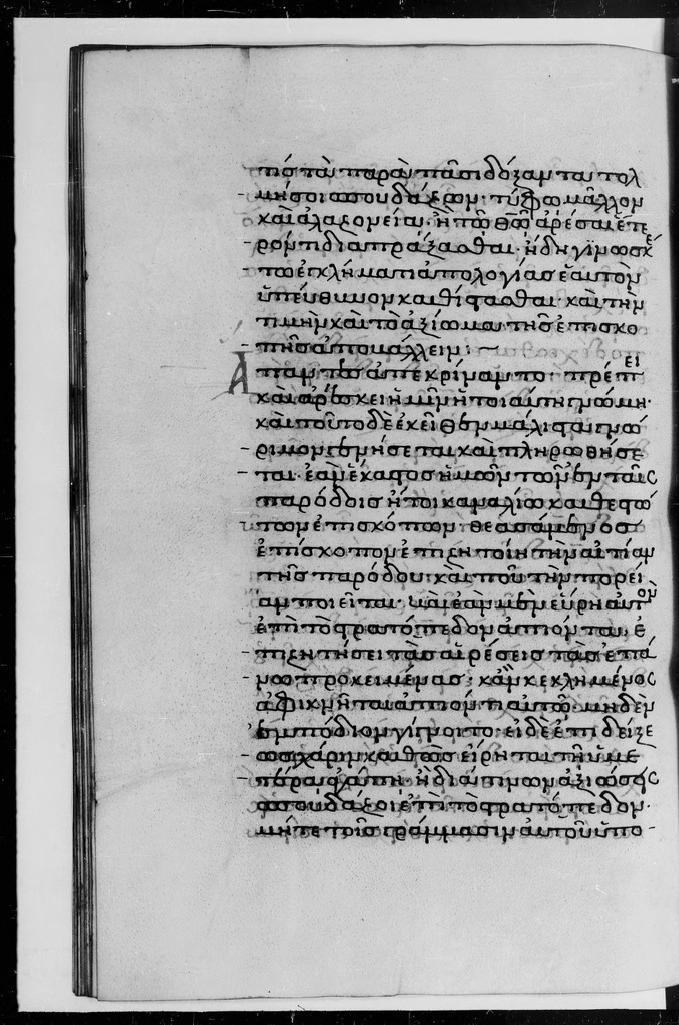 τίς ταύ παρὰ πᾶσι δόξαν ταύ τολ
μήσοι σπουδάζων· τύφω μᾶλλον
καὶ ἀλαζονεία· ἢ τῶ θῶ ἀρέσαι ἕτε
ρόν τι διαπράξασθαι· ἤδη γινωσκέ
τω ἐγκλήματι ἀπολογίας ἑαυτὸν
ὑπεύθυνον καθίστασθαι· καὶ τὴν
τιμὴν καὶ τὸ ἀξίωμα τῆς ἐπισκο
πῆς ἀποβάλλειν:
Ἅπαντες ἀπεκρίναντο· πρέπει
καὶ ἀρέσκει ἡμῖν ἥτοι αὕτη γνώμη·
καὶ τοῦτο δὲ ἐκεῖθεν μάλιστα γνώ
ριμον γενήσεται καὶ πληρωθήσε
ται· ἐὰν ἕκαστος ἡμῶν τῶν ἐν ταῖς
παρόδοις ἤτοι καναλίω καθεστώ
των ἐπισκόπων θεασάμενος
ἐπίσκοπον ἐπιζητοίη τὴν αἰτίαν
τῆς παρόδου· καὶ ποῦ τὴν πορεί
αν ποιεῖται· καὶ ἐὰν μὲν εὕρη αὐτὸν
ἐπὶ τὸ στρατόπεδον ἀπιόντα, ἐ
πιζητήσει τὰς αἱρέσεις τὰς ἐπά
νω προκειμένας· κἂν κεκλημένος
ἀφικνῆται ἀπιόντι αὐτῶ· μηδὲν
ἐμπόδιον γίγνοιτο· εἰ δὲ ἐπιδείξε
ως χάριν καθὼς εἴρηται τῆ ὑμε
τέρα ἀγάπη· ἢ διά τινων ἀξιώσεις
σπουδάζοι ἐπὶ τὸ στρατόπεδον·
μήτε τοῖς γράμμασιν αὐτοῦ ὑπο